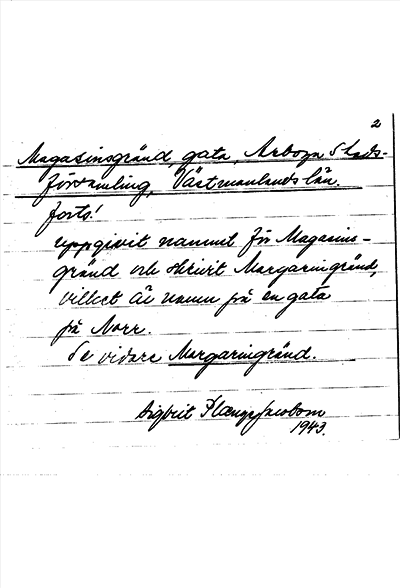 2
Magasinsgränd, gata, Arboga Stads-
församling, Västmanlands län.
forts!
uppgivit namnet för Magasins-
gränd och skrivit Margaringränd,
vilket är namn på en gata
på Norr.
Se vidare Margaringränd.
Sigbrit Plænge Jacobson
1943.